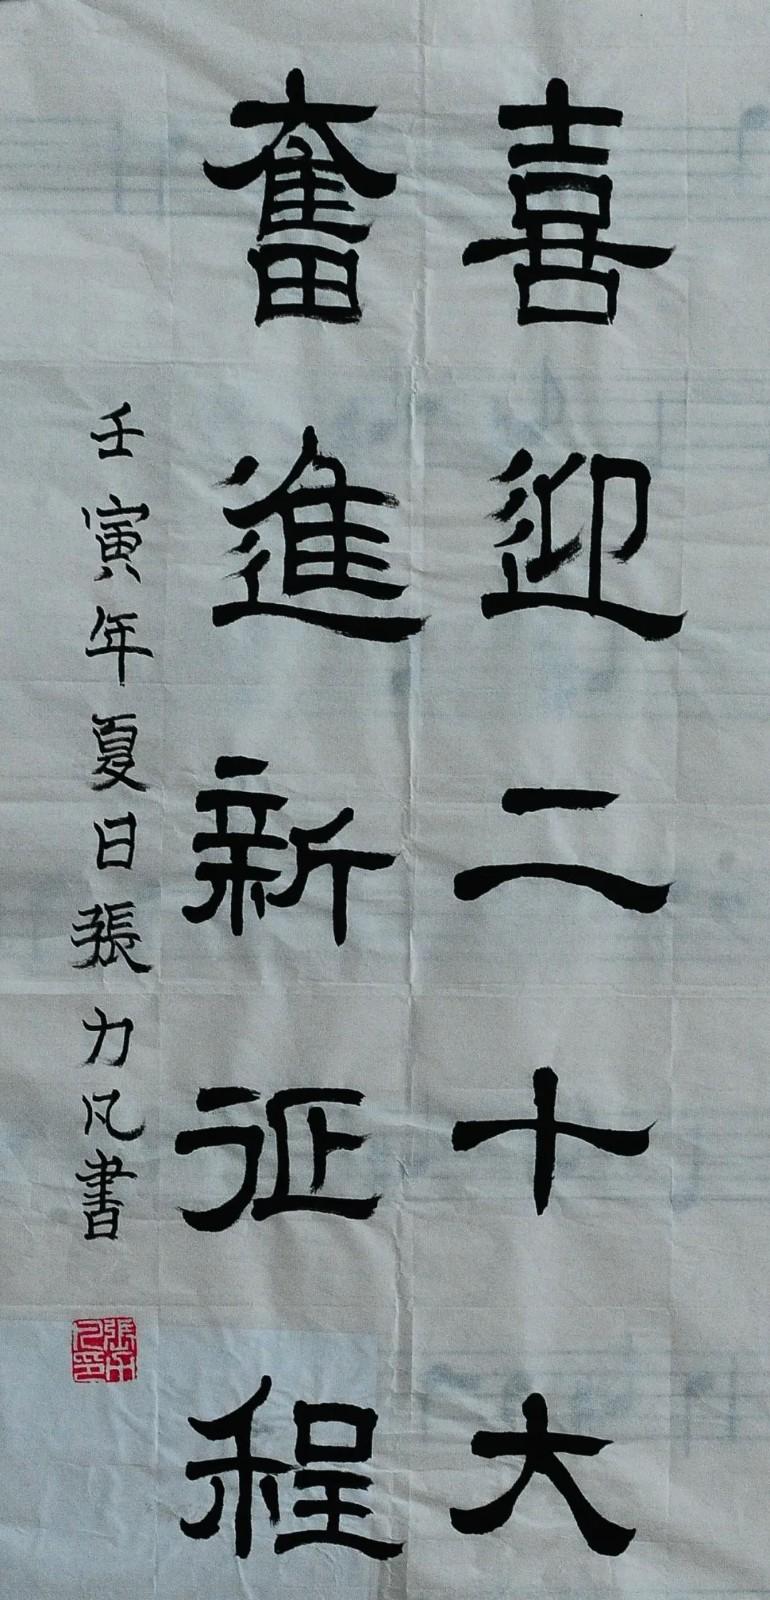 喜迎二十大
奮進新征程
壬寅年夏日張力凡書